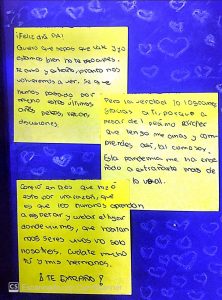 ¡Feliz día PA!
Quiero que sepas que Kate y yo
estamos bien no te preocupes,
te amo y extraño, pronto nos
volveremos a ver. Se que
hemos pasado por
mucho estos últimos
años, peleas,
discusiones.
Pero la verdad lo logramos
gracias a ti, porque a
pesar del pésimo
que tengo me amas y com-
prendes así, tal como soy.
Esta pandemia me ha ense-
ñado a extrañarte más de
lo usual.
Confió en Dios que hizo
esto por una razón, que
es que los humanos aprendan
a respetar y cuidar el lugar
donde vivimos, que
más seres vivos no solo
nosotros. Cuídate mucho
tú y mis hermanos.
¡TE EXTRAÑO!
CS